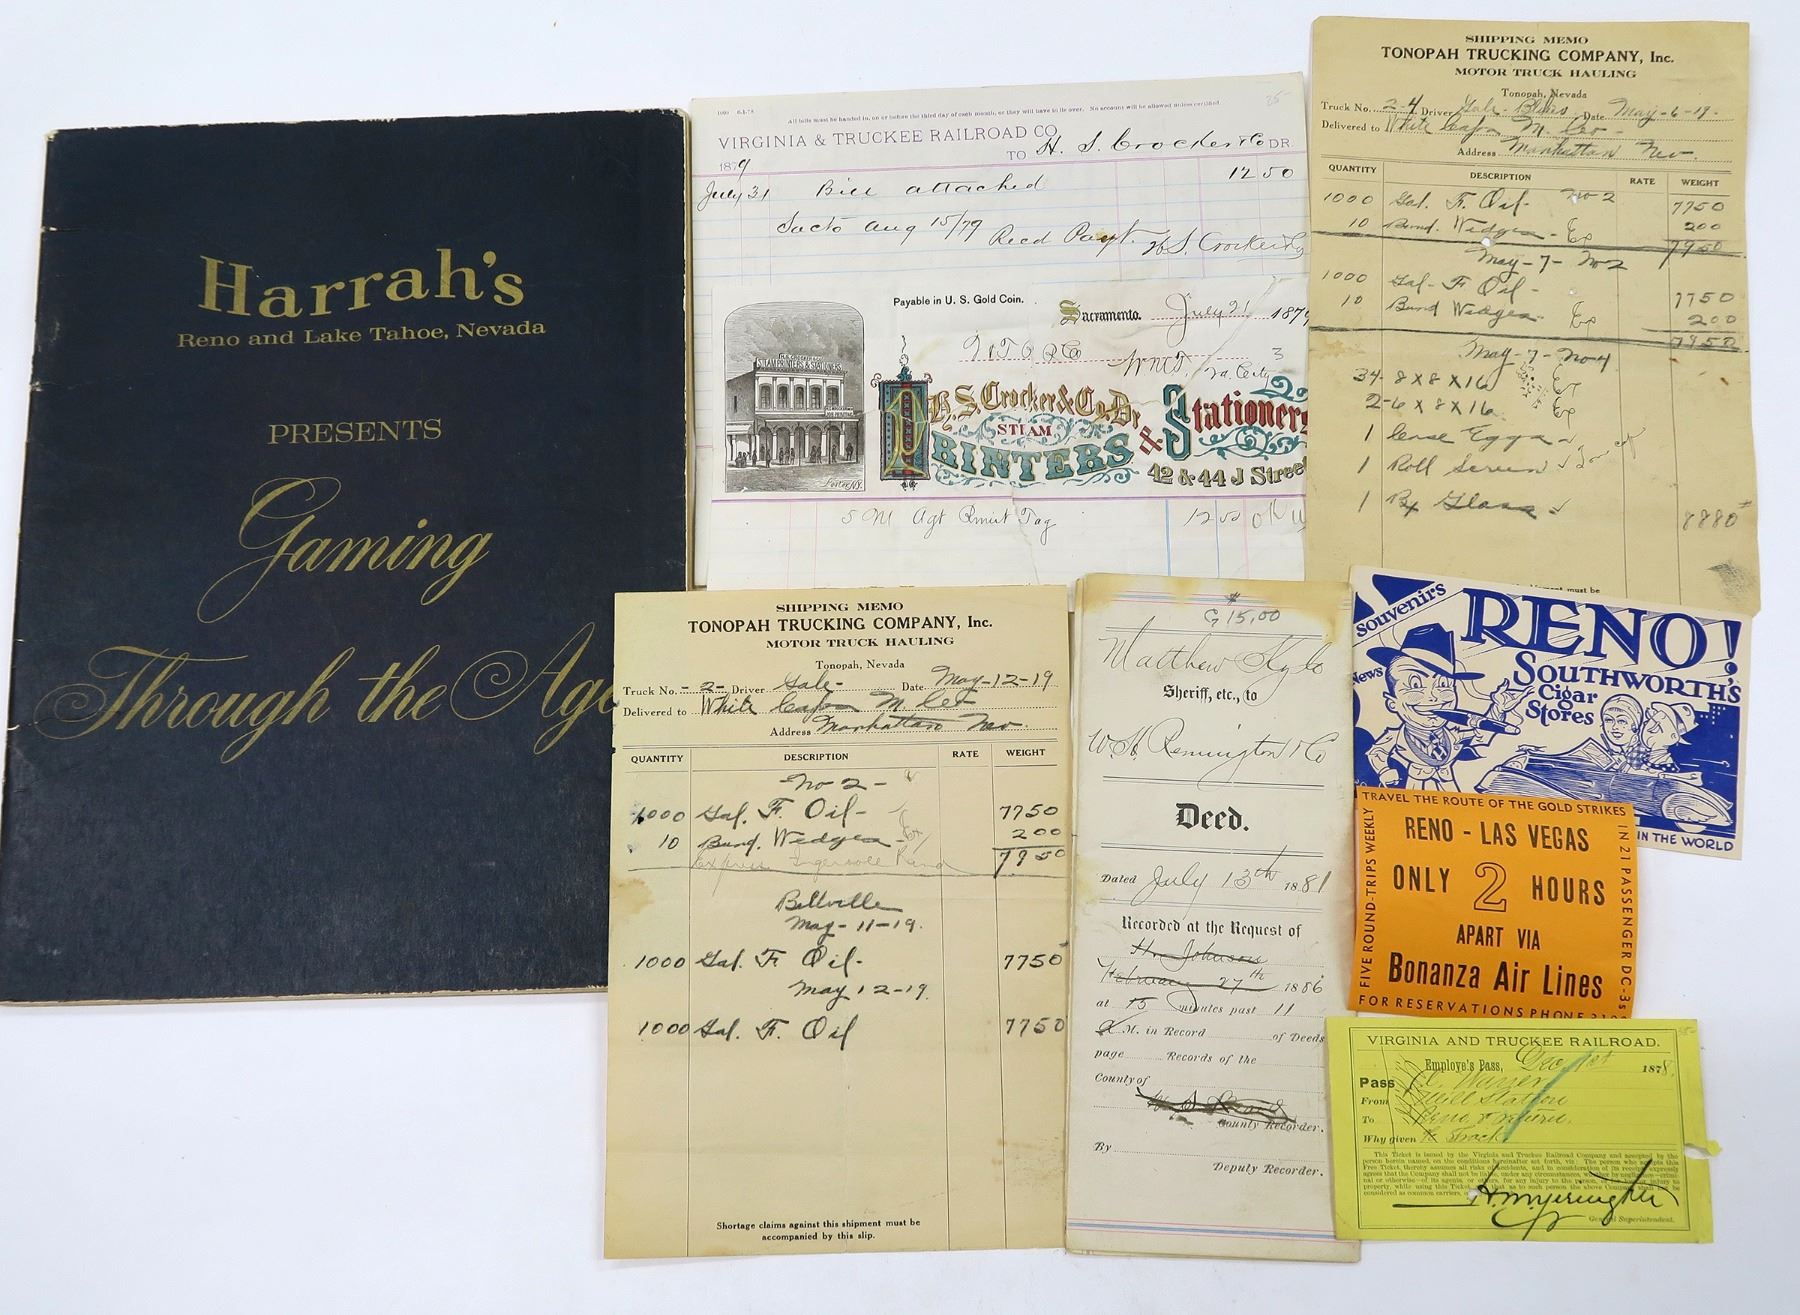 Harrah's
Reno and Lake Tahoe, Nevada
PRESENTS
Gaming
Through the Age
1000 6-1-78
All bills must be handed in, on or before the third day of each month, or they will have to lie over. No account will be allowed unless certified.
25-
VIRGINIA & TRUCKEE RAILROAD CO.
TO H. S. Crocker & Co DR
1879
July 31 Bill attached 12 50
Sacto Aug 15/79 Recd Payt. H S Crocker & Co
Payable in U. S. Gold Coin.
Sacramento. July 21 1879
V & T R R Co
Va. City
H. S. CROCKER & CO.
STEAM PRINTERS & STATIONERS
H. S. Crocker & Co. Dr.
STEAM
PRINTERS & Stationers
42 & 44 J Street
5 M Agt Rmit Tag 12 50 OK
SHIPPING MEMO
TONOPAH TRUCKING COMPANY, Inc.
MOTOR TRUCK HAULING
Tonopah, Nevada
Truck No. 2-4 Driver Gale - Date May-6-19.
Delivered to White Caps M. Co -
Address Manhattan Nev.
QUANTITY DESCRIPTION RATE WEIGHT
1000 Gal. F. Oil- No 2 7750
10 Bund. Wedges - Ex 200
7950
May-7- No 2
1000 Gal- F. Oil - 7750
10 Bund Wedges Ex 200
7950
May-7- No 4
34- 8 x 8 x 16
2-6 x 8 x 16
1 Case Eggs
1 Roll Screen
1 Bx Glass 8880 #
SHIPPING MEMO
TONOPAH TRUCKING COMPANY, Inc.
MOTOR TRUCK HAULING
Tonopah, Nevada
Truck No. -2- Driver Gale- Date May-12-19
Delivered to White Caps M Co-
Address Manhattan Nev
QUANTITY DESCRIPTION RATE WEIGHT
No 2-
1000 Gal. F. Oil- 7750
10 Bund. Wedges - Ex 200
Express Ingersoll Rand 7950
Bellville
May-11-19.
1000 Gal. F Oil- 7750
May 12-19.
1000 Gal. F. Oil 7750
Shortage claims against this shipment must be
accompanied by this slip.
# G 15,00
Matthew Kyle
Sheriff, etc., to
W. H. Remington & Co
Deed.
Dated July 13th 1881
Recorded at the Request of
H. Johnson
February 27th 1886
at 15 minutes past 11
A M. in Record of Deeds
page Records of the
County of
County Recorder.
By
Deputy Recorder.
Souvenirs
RENO!
News
SOUTHWORTH'S
Cigar
Stores
IN THE WORLD
TRAVEL THE ROUTE OF THE GOLD STRIKES
FIVE ROUND-TRIPS WEEKLY
IN 21 PASSENGER DC-3s
RENO - LAS VEGAS
ONLY 2 HOURS
APART VIA
Bonanza Air Lines
FOR RESERVATIONS PHONE
VIRGINIA AND TRUCKEE RAILROAD.
Employe's Pass, Dec 1st 1878.
Pass C. Warren
From Mill Station
To Reno & return.
Why given Track
This Ticket is issued by the Virginia and Truckee Railroad Company and accepted by the
person herein named, on the conditions hereinafter set forth, viz: The person who accepts this
Free Ticket, thereby assumes all risks of accidents, and in consideration of its receipt expressly
agrees that the Company shall not be liable, under any circumstances, whether by negligence—criminal
or otherwise—of its agents, or others, for any injury to the person, or for any injury to
property, while using this Ticket and that as to such person the above Company shall not be
considered as common carriers,
H. M. Yerington
General Superintendent.